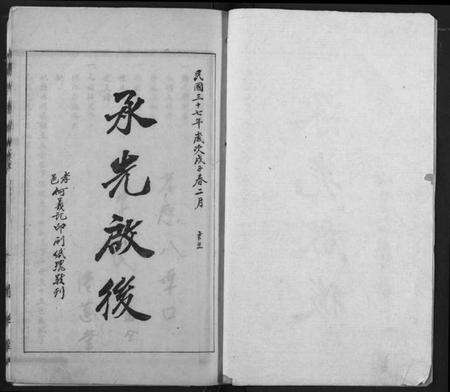 民國三十七年歲次戊子春二月
承先啟後
孝邑何義記印刷紙號敬刊